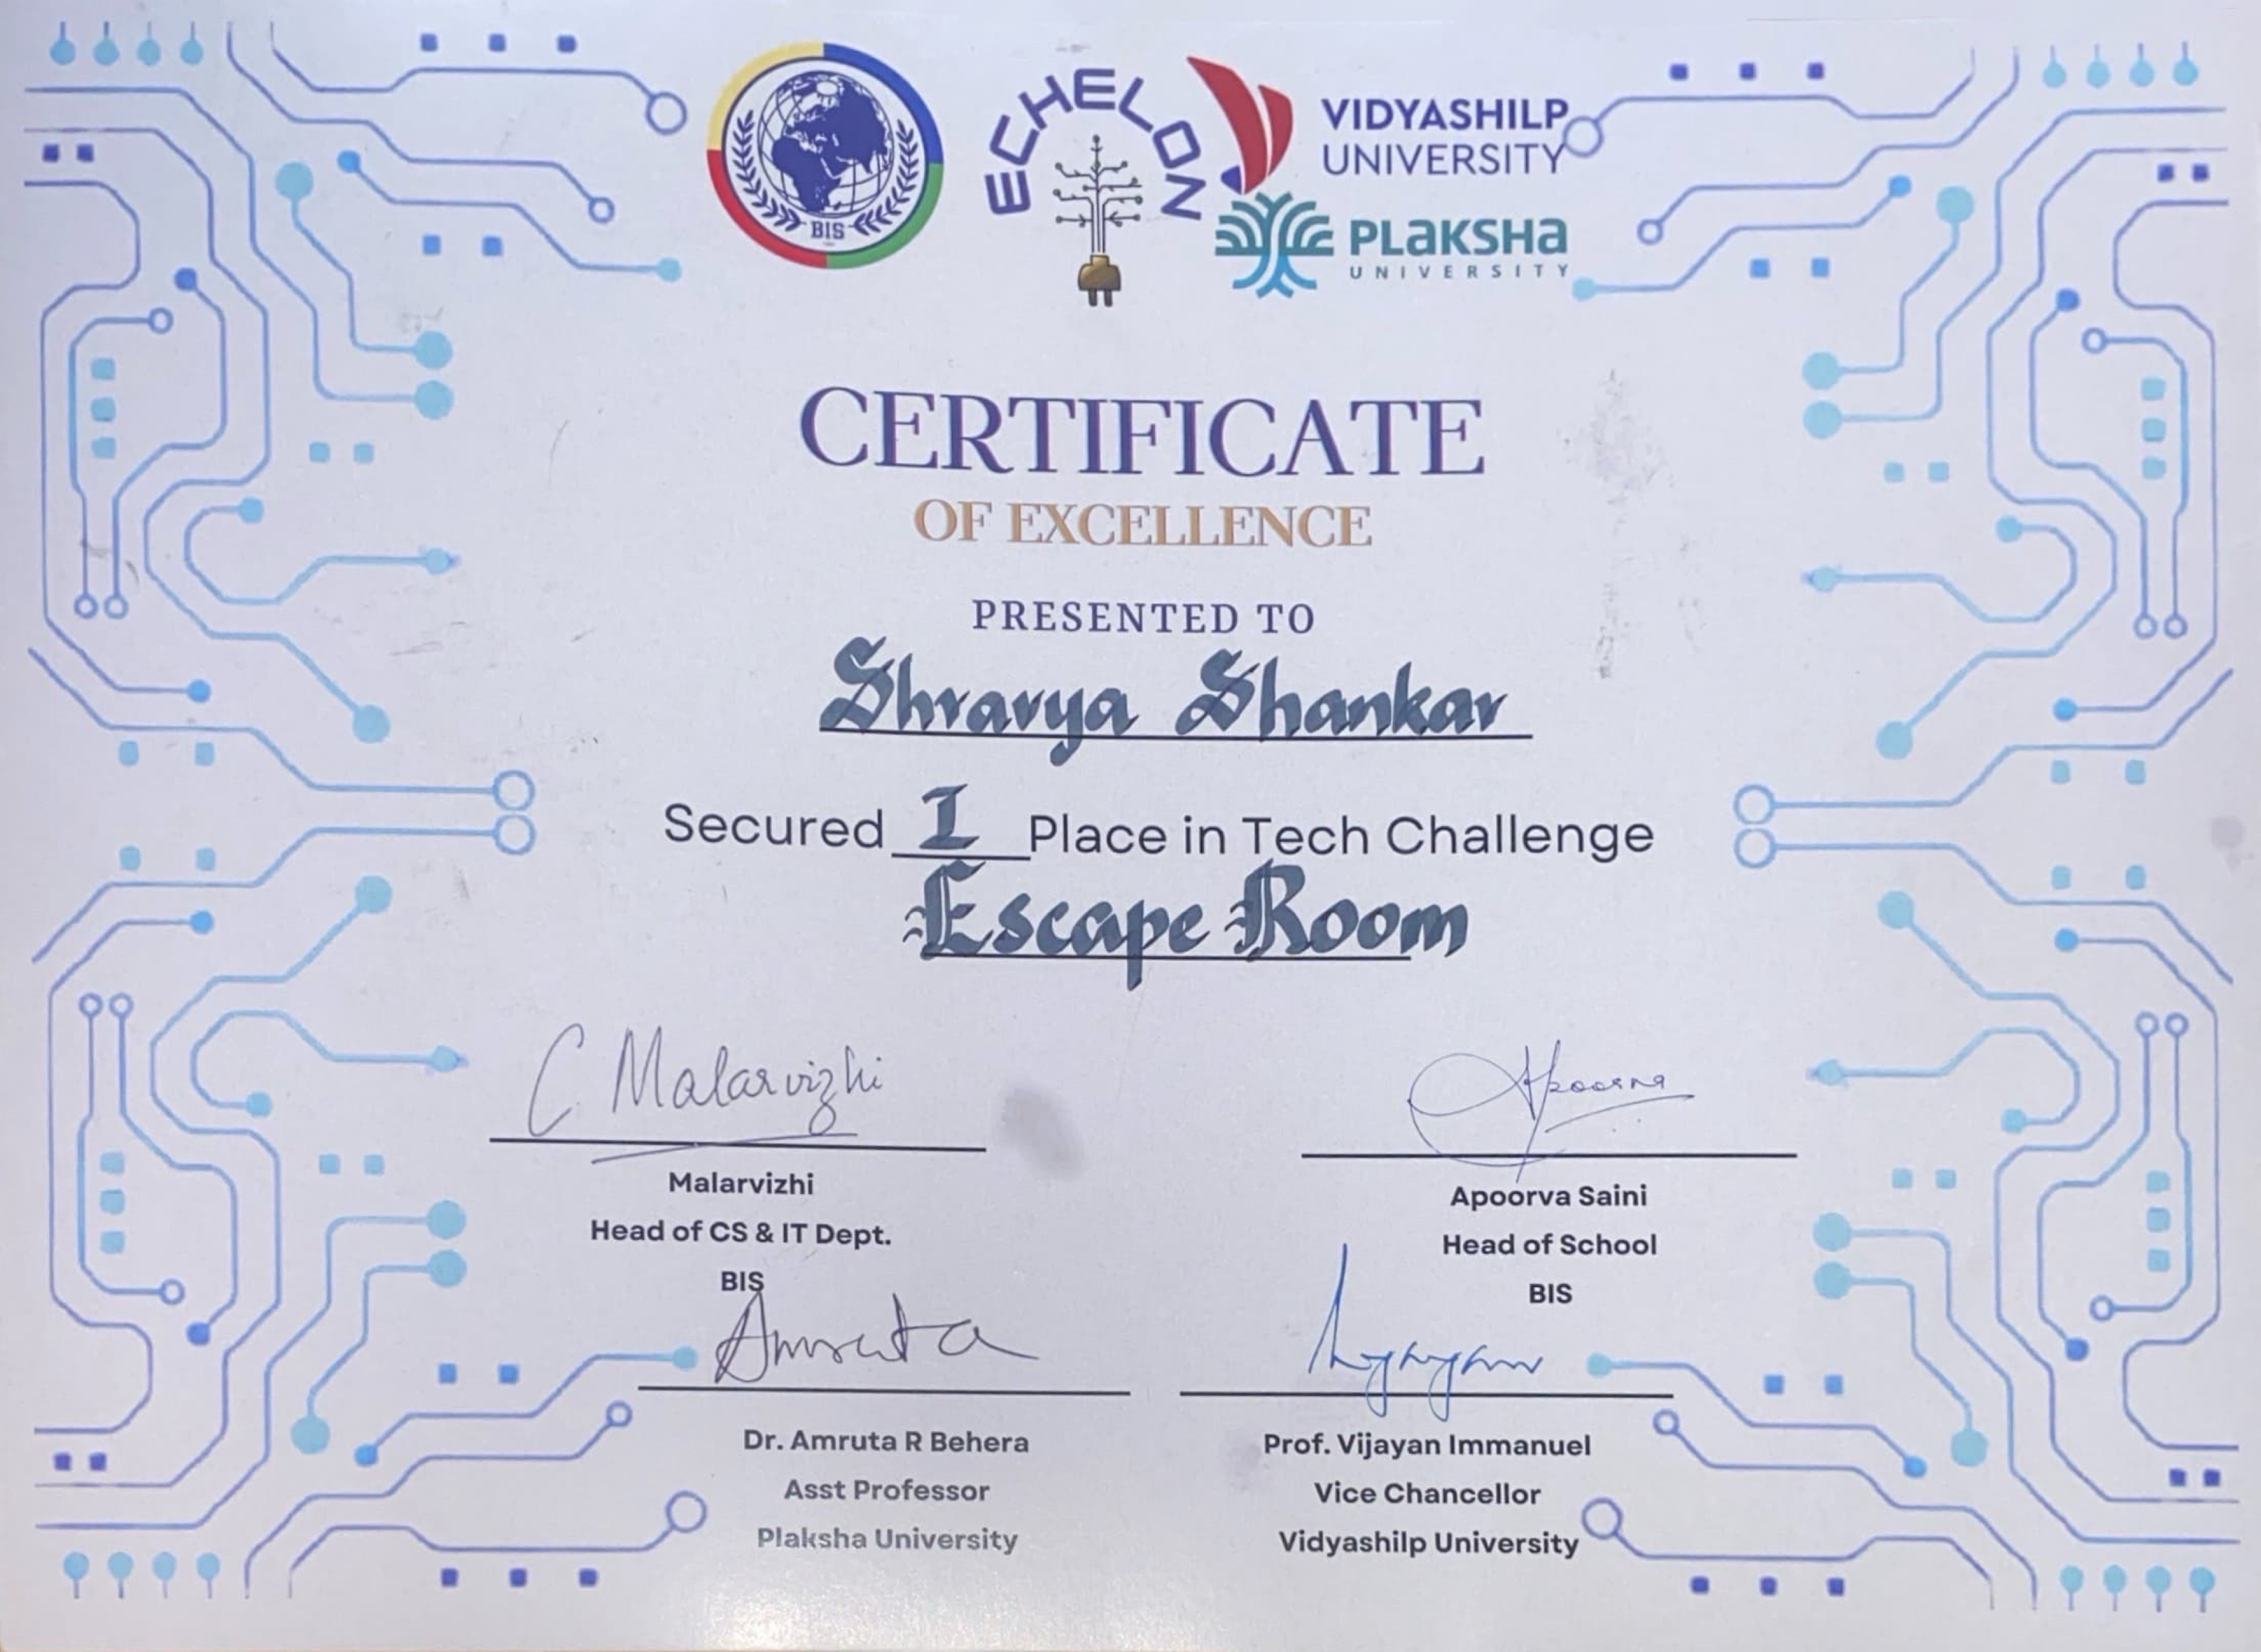 BIS
ECHELON
VIDYASHILP
UNIVERSITY
PLAKSHA
UNIVERSITY
CERTIFICATE
OF EXCELLENCE
PRESENTED TO
Shravya Shankar
Secured I Place in Tech Challenge
Escape Room
C. Malarvizhi
Apoorva
Malarvizhi
Head of CS & IT Dept.
BIS
Apoorva Saini
Head of School
BIS
Amruta
Dr. Amruta R Behera
Asst Professor
Plaksha University
Prof. Vijayan Immanuel
Vice Chancellor
Vidyashilp University